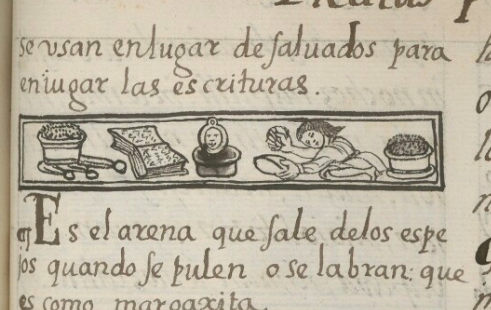 se vsan en lugar de saluados para
eniugar las escrituras.
Es el arena que sale delos espe
jos quando se pulen o se labran: que
es como margaxita.